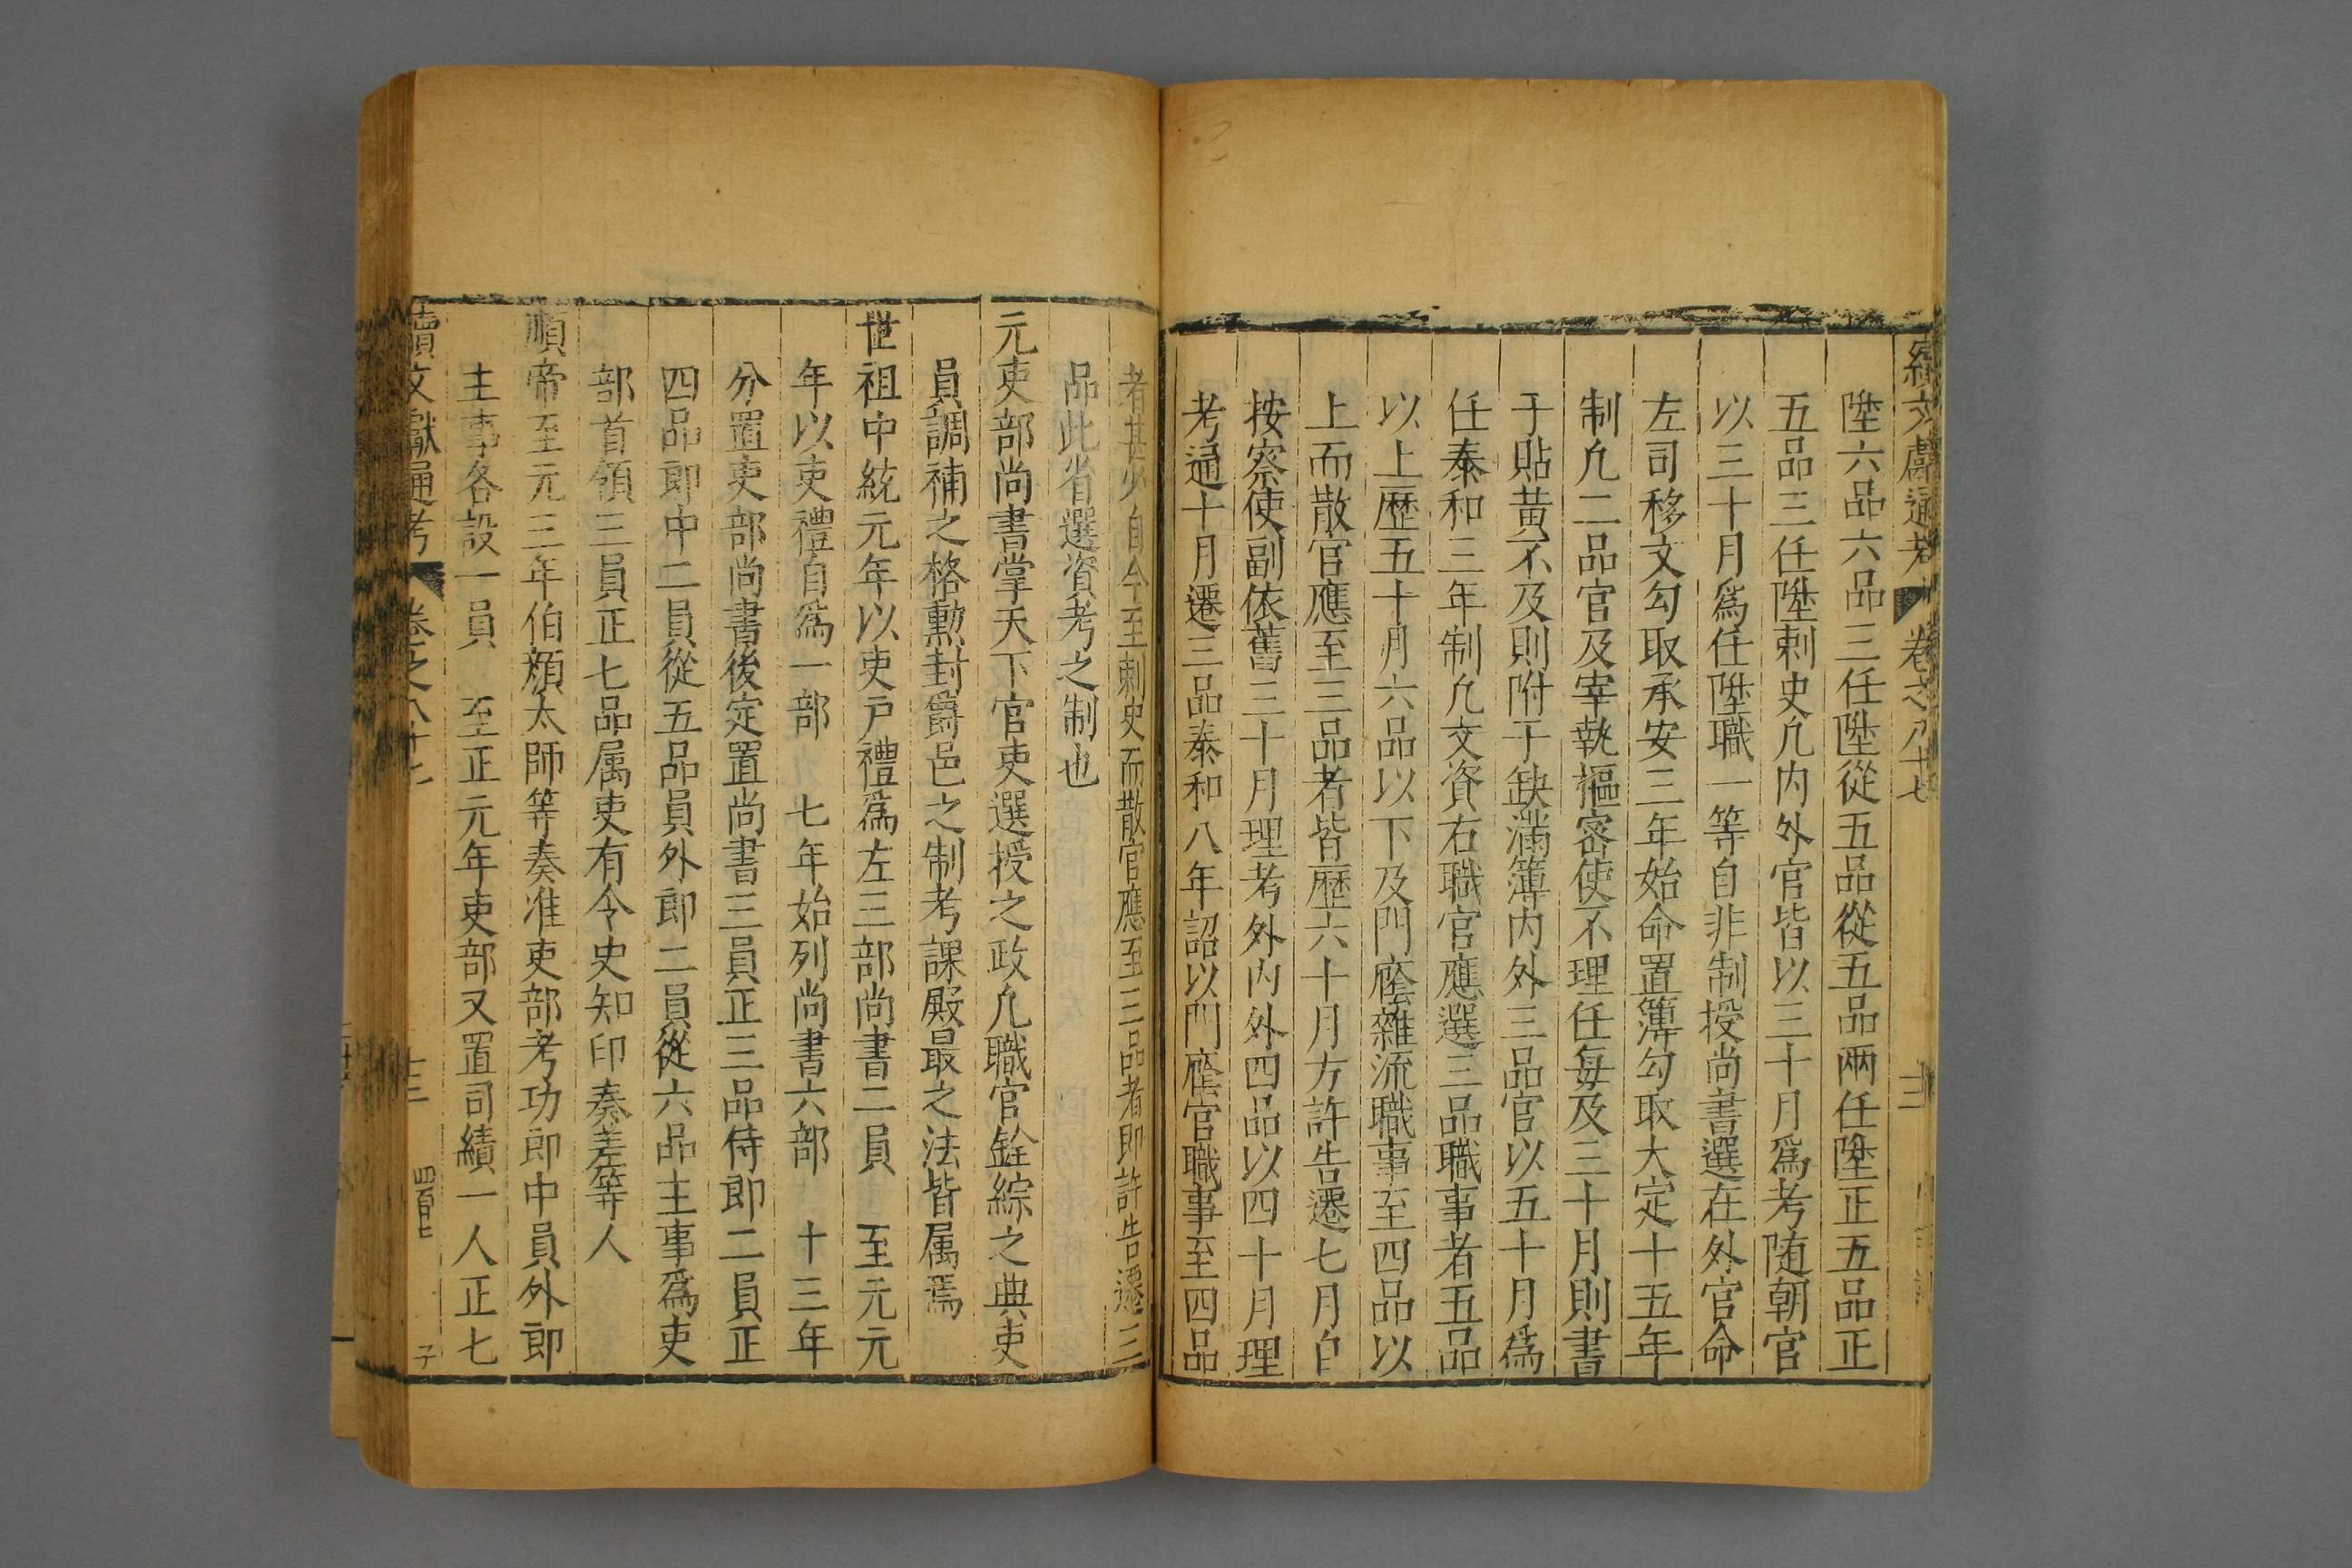 續文獻通考 卷之八十七 三
陞六品六品三任陞從五品從五品兩任陞正五品正
五品三任陞刺史凢内外官皆以三十月爲考随朝官
以三十月爲任陞職一等自非制授尚書選在外官命
左司移文勾取承安三年始命置簿勾取大定十五年
制凢二品官及宰執樞密使不理任每及三十月則書
于貼黄不及則附于缺滿簿内外三品官以五十月爲
任泰和三年制凢文資右職官應選三品職事者五品
以上歷五十月六品以下及門廕雜流職事至四品以
上而散官應至三品者皆歷六十月方許告遷七月自
按察使副依舊三十月理考外内外四品以四十月理
考通十月遷三品泰和八年詔以門廕官職事至四品
者甚少自今至刺史而散官應至三品者即許告遷三
品此省選資考之制也
元吏部尚書掌天下官吏選授之政凢職官銓綜之典吏
員調補之格勲封爵邑之制考課殿最之法皆属焉
世祖中統元年以吏戸禮爲左三部尚書二員 至元元
年以吏禮自爲一部 七年始列尚書六部 十三年
分置吏部尚書後定置尚書三員正三品侍郎二員正
四品郎中二員從五品員外郎二員從六品主事爲吏
部首領三員正七品属吏有令史知印奏差等人
順帝至元三年伯顔太師等奏准吏部考功郎中員外郎
主事各設一員 至正元年吏部又置司績一人正七
續文獻通考 卷之八十七 十三 四百七 子